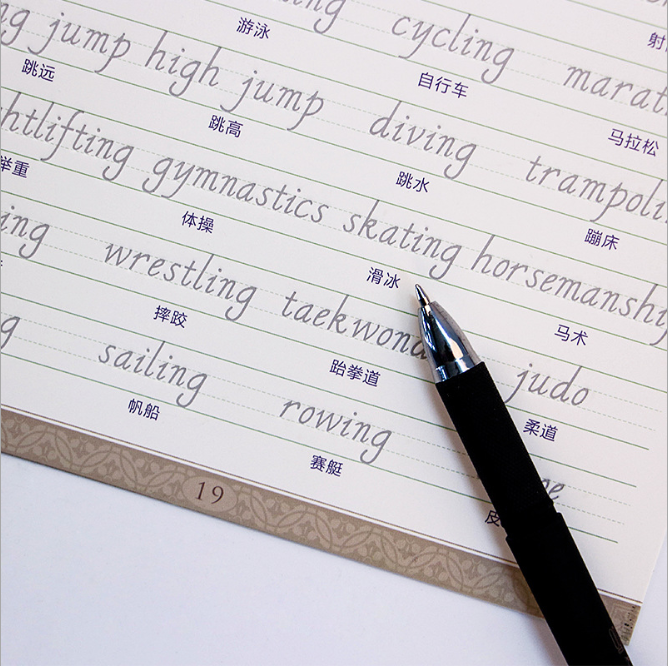 游泳
jump high jump cycling
跳远 跳高 自行车 马拉松
gymnastics diving
举重 体操 跳水 蹦床
wrestling skating
摔跤 滑冰 马术
sailing judo
帆船 跆拳道 柔道
rowing
赛艇
19